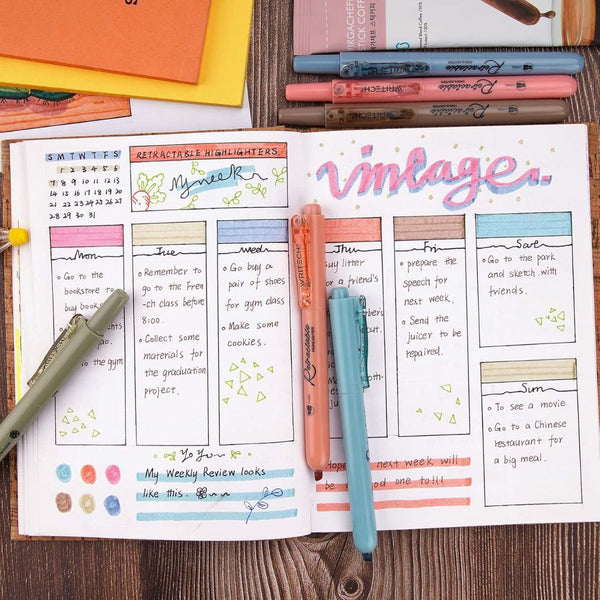 STICK COFFEE
Retractable
HIGHLIGHTER
WRITECH
Retractable
HIGHLIGHTER
WRITECH
Retractable
HIGHLIGHTER
S M T W T F S
1 2 3 4 5 6
7 8 9 10 11 12 13
14 15 16 17 18 19 20
21 22 23 24 25 26 27
28 29 30 31
RETRACTABLE HIGHLIGHTERS
My week
vintage
Mon
Go to the
bookstore to
buy book
to the gym
Tue
Remember to
go to the Fren
-ch class before
8:00.
Collect some
materials for
the graduation
project.
wed
Go buy a
pair of shoes
for gym class
Make some
cookies.
Thu
litter
for a friend's
Fri
prepare the
speech for
next week.
Send the
juicer to be
repaired.
Sat
Go to the park
and sketch with
friends.
Sun
To see a movie
Go to a Chinese
restaurant for
a big meal.
WRITECH
Retractable
Yo You
My Weekly Review looks
like this.
Hope next week will
be good one to!!!